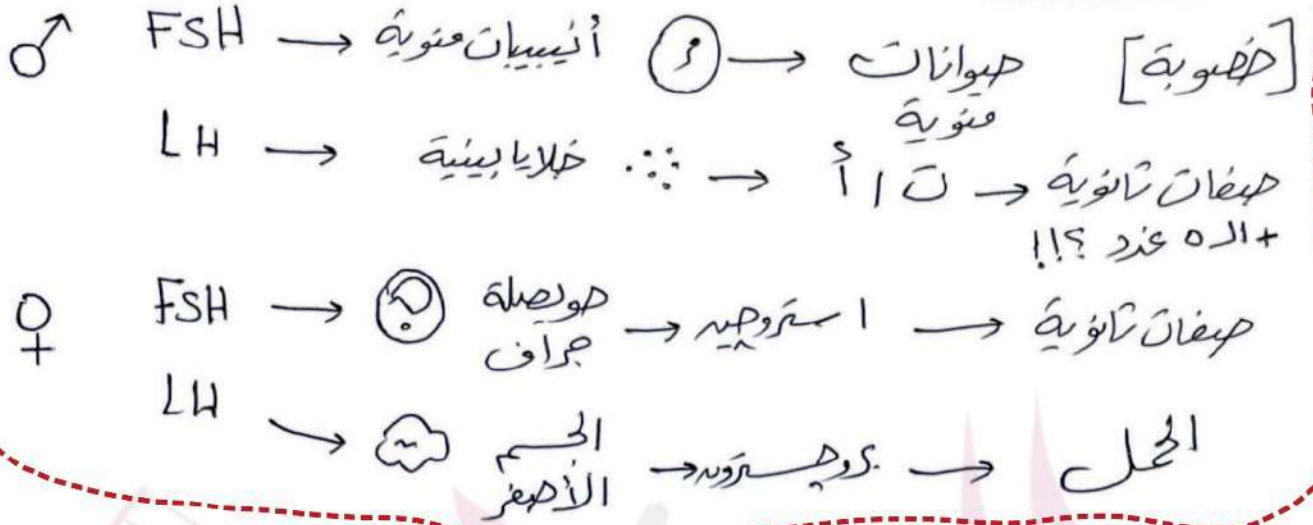 ♂ FSH → أنيبيبات منوية → حيوانات منوية [خصوبة]
LH → خلايا بينية → ت / أ → صفات ثانوية
+ الـ ٥ غدد ؟!!
♀ FSH → حويصلة جراف → استروجين → صفات ثانوية
LH → الجسم الأصفر → بروجسترون → الحمل